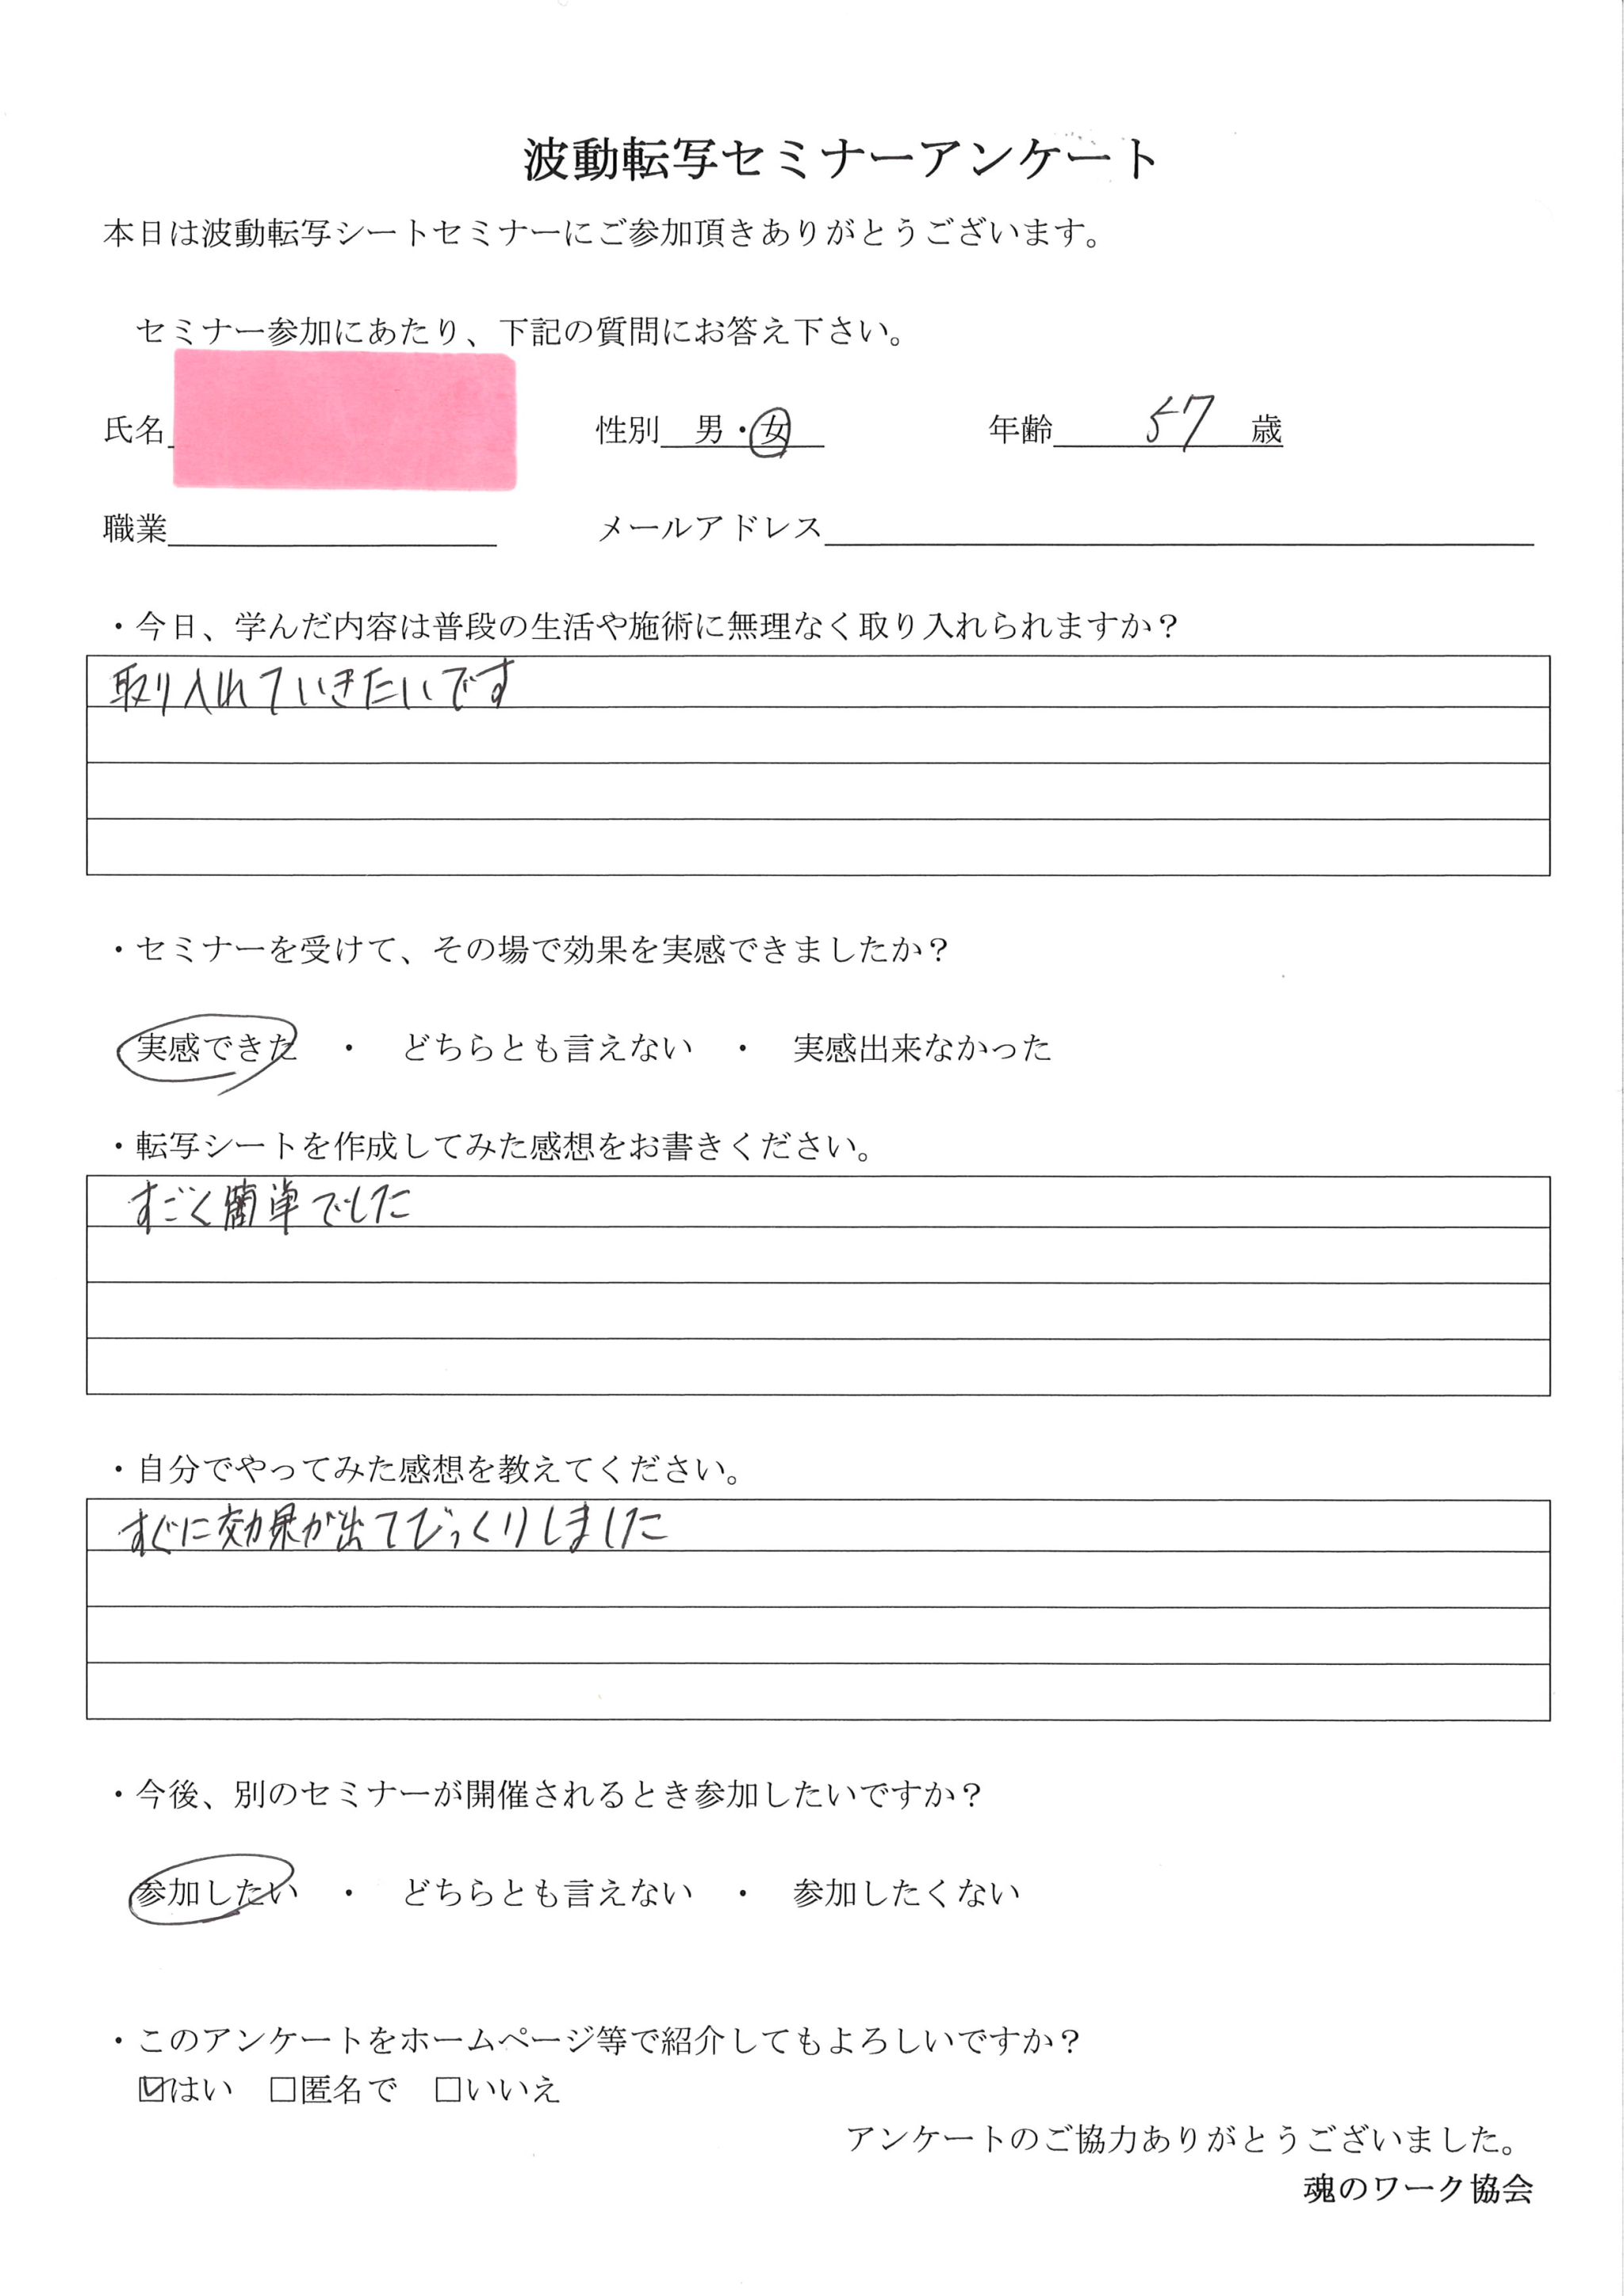 波動転写セミナーアンケート
本日は波動転写シートセミナーにご参加頂きありがとうございます。
セミナー参加にあたり、下記の質問にお答え下さい。
氏名 性別 男・女 年齢 57 歳
職業 メールアドレス
・今日、学んだ内容は普段の生活や施術に無理なく取り入れられますか？
取り入れていきたいです
・セミナーを受けて、その場で効果を実感できましたか？
実感できた ・ どちらとも言えない ・ 実感出来なかった
・転写シートを作成してみた感想をお書きください。
すごく簡単でした
・自分でやってみた感想を教えてください。
すぐに効果が出てびっくりしました
・今後、別のセミナーが開催されるとき参加したいですか？
参加したい ・ どちらとも言えない ・ 参加したくない
・このアンケートをホームページ等で紹介してもよろしいですか？
☑はい □匿名で □いいえ
アンケートのご協力ありがとうございました。
魂のワーク協会